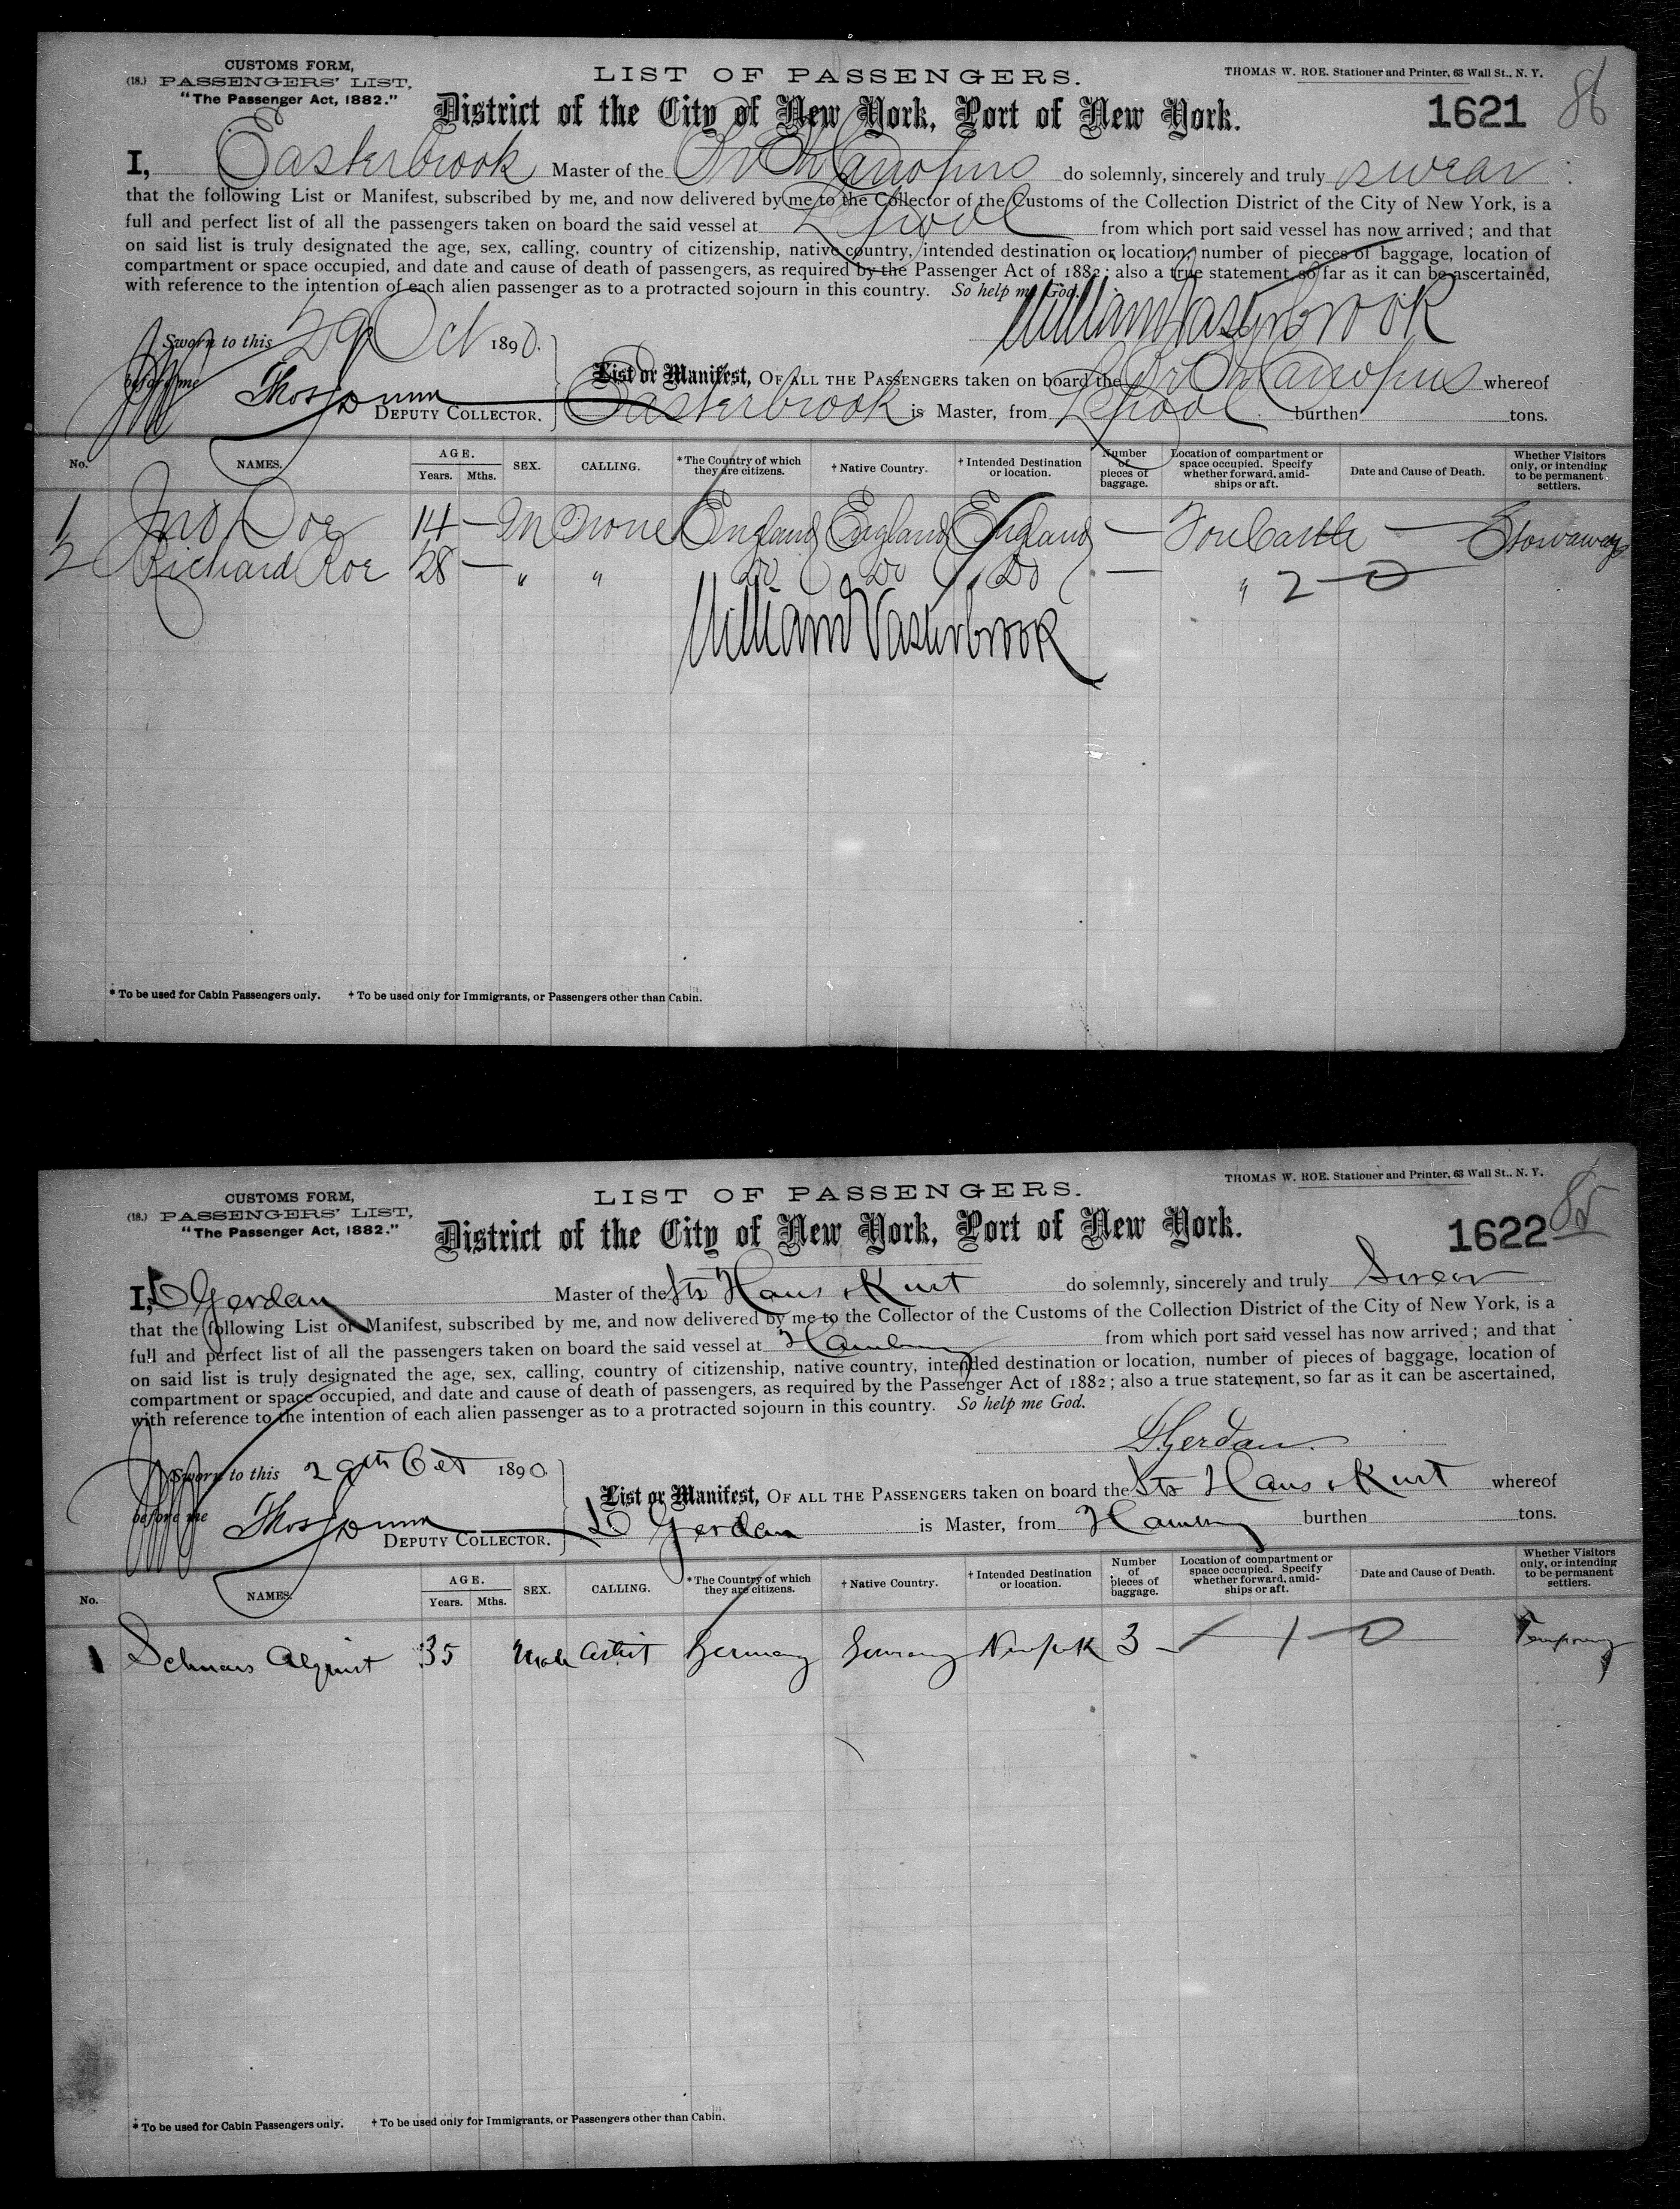 CUSTOMS FORM,
(18.) PASSENGERS' LIST,
"The Passenger Act, 1882."
LIST OF PASSENGERS.
THOMAS W. ROE. Stationer and Printer, 63 Wall St., N. Y.
District of the City of New York, Port of New York.
1621 86
I, Easterbrook Master of the Canopus do solemnly, sincerely and truly swear
that the following List or Manifest, subscribed by me, and now delivered by me to the Collector of the Customs of the Collection District of the City of New York, is a
full and perfect list of all the passengers taken on board the said vessel at L'pool from which port said vessel has now arrived; and that
on said list is truly designated the age, sex, calling, country of citizenship, native country, intended destination or location, number of pieces of baggage, location of
compartment or space occupied, and date and cause of death of passengers, as required by the Passenger Act of 1882; also a true statement, so far as it can be ascertained,
with reference to the intention of each alien passenger as to a protracted sojourn in this country. So help me God.
William Easterbrook
Sworn to this 29 Oct 1890.
before me
DEPUTY COLLECTOR.
List or Manifest, OF ALL THE PASSENGERS taken on board the Canopus whereof
Easterbrook is Master, from L'pool burthen tons.
No. NAMES. AGE. Years. Mths. SEX. CALLING. *The Country of which they are citizens. †Native Country. †Intended Destination or location. Number of pieces of baggage. Location of compartment or space occupied. Specify whether forward, amidships or aft. Date and Cause of Death. Whether Visitors only, or intending to be permanent settlers.
1 Jno Doe 14 — M None England England England — Stowaways
2 Richard Roe 28 — " " Do Do Do — " 2 — 0
William Easterbrook
* To be used for Cabin Passengers only. † To be used only for Immigrants, or Passengers other than Cabin.
CUSTOMS FORM,
(18.) PASSENGERS' LIST,
"The Passenger Act, 1882."
LIST OF PASSENGERS.
THOMAS W. ROE. Stationer and Printer, 63 Wall St., N. Y.
District of the City of New York, Port of New York.
1622 85
I, Gerdau Master of the Str Hans & Kurt do solemnly, sincerely and truly Swear
that the following List or Manifest, subscribed by me, and now delivered by me to the Collector of the Customs of the Collection District of the City of New York, is a
full and perfect list of all the passengers taken on board the said vessel at Hamburg from which port said vessel has now arrived; and that
on said list is truly designated the age, sex, calling, country of citizenship, native country, intended destination or location, number of pieces of baggage, location of
compartment or space occupied, and date and cause of death of passengers, as required by the Passenger Act of 1882; also a true statement, so far as it can be ascertained,
with reference to the intention of each alien passenger as to a protracted sojourn in this country. So help me God.
Gerdau
Sworn to this 29th Oct 1890.
before me
DEPUTY COLLECTOR.
List or Manifest, OF ALL THE PASSENGERS taken on board the Str Hans & Kurt whereof
Gerdau is Master, from Hamburg burthen tons.
No. NAMES. AGE. Years. Mths. SEX. CALLING. *The Country of which they are citizens. †Native Country. †Intended Destination or location. Number of pieces of baggage. Location of compartment or space occupied. Specify whether forward, amidships or aft. Date and Cause of Death. Whether Visitors only, or intending to be permanent settlers.
1 35 Male Artist Germany Germany New York 3 — 1 — 0 Temporary
* To be used for Cabin Passengers only. † To be used only for Immigrants, or Passengers other than Cabin.